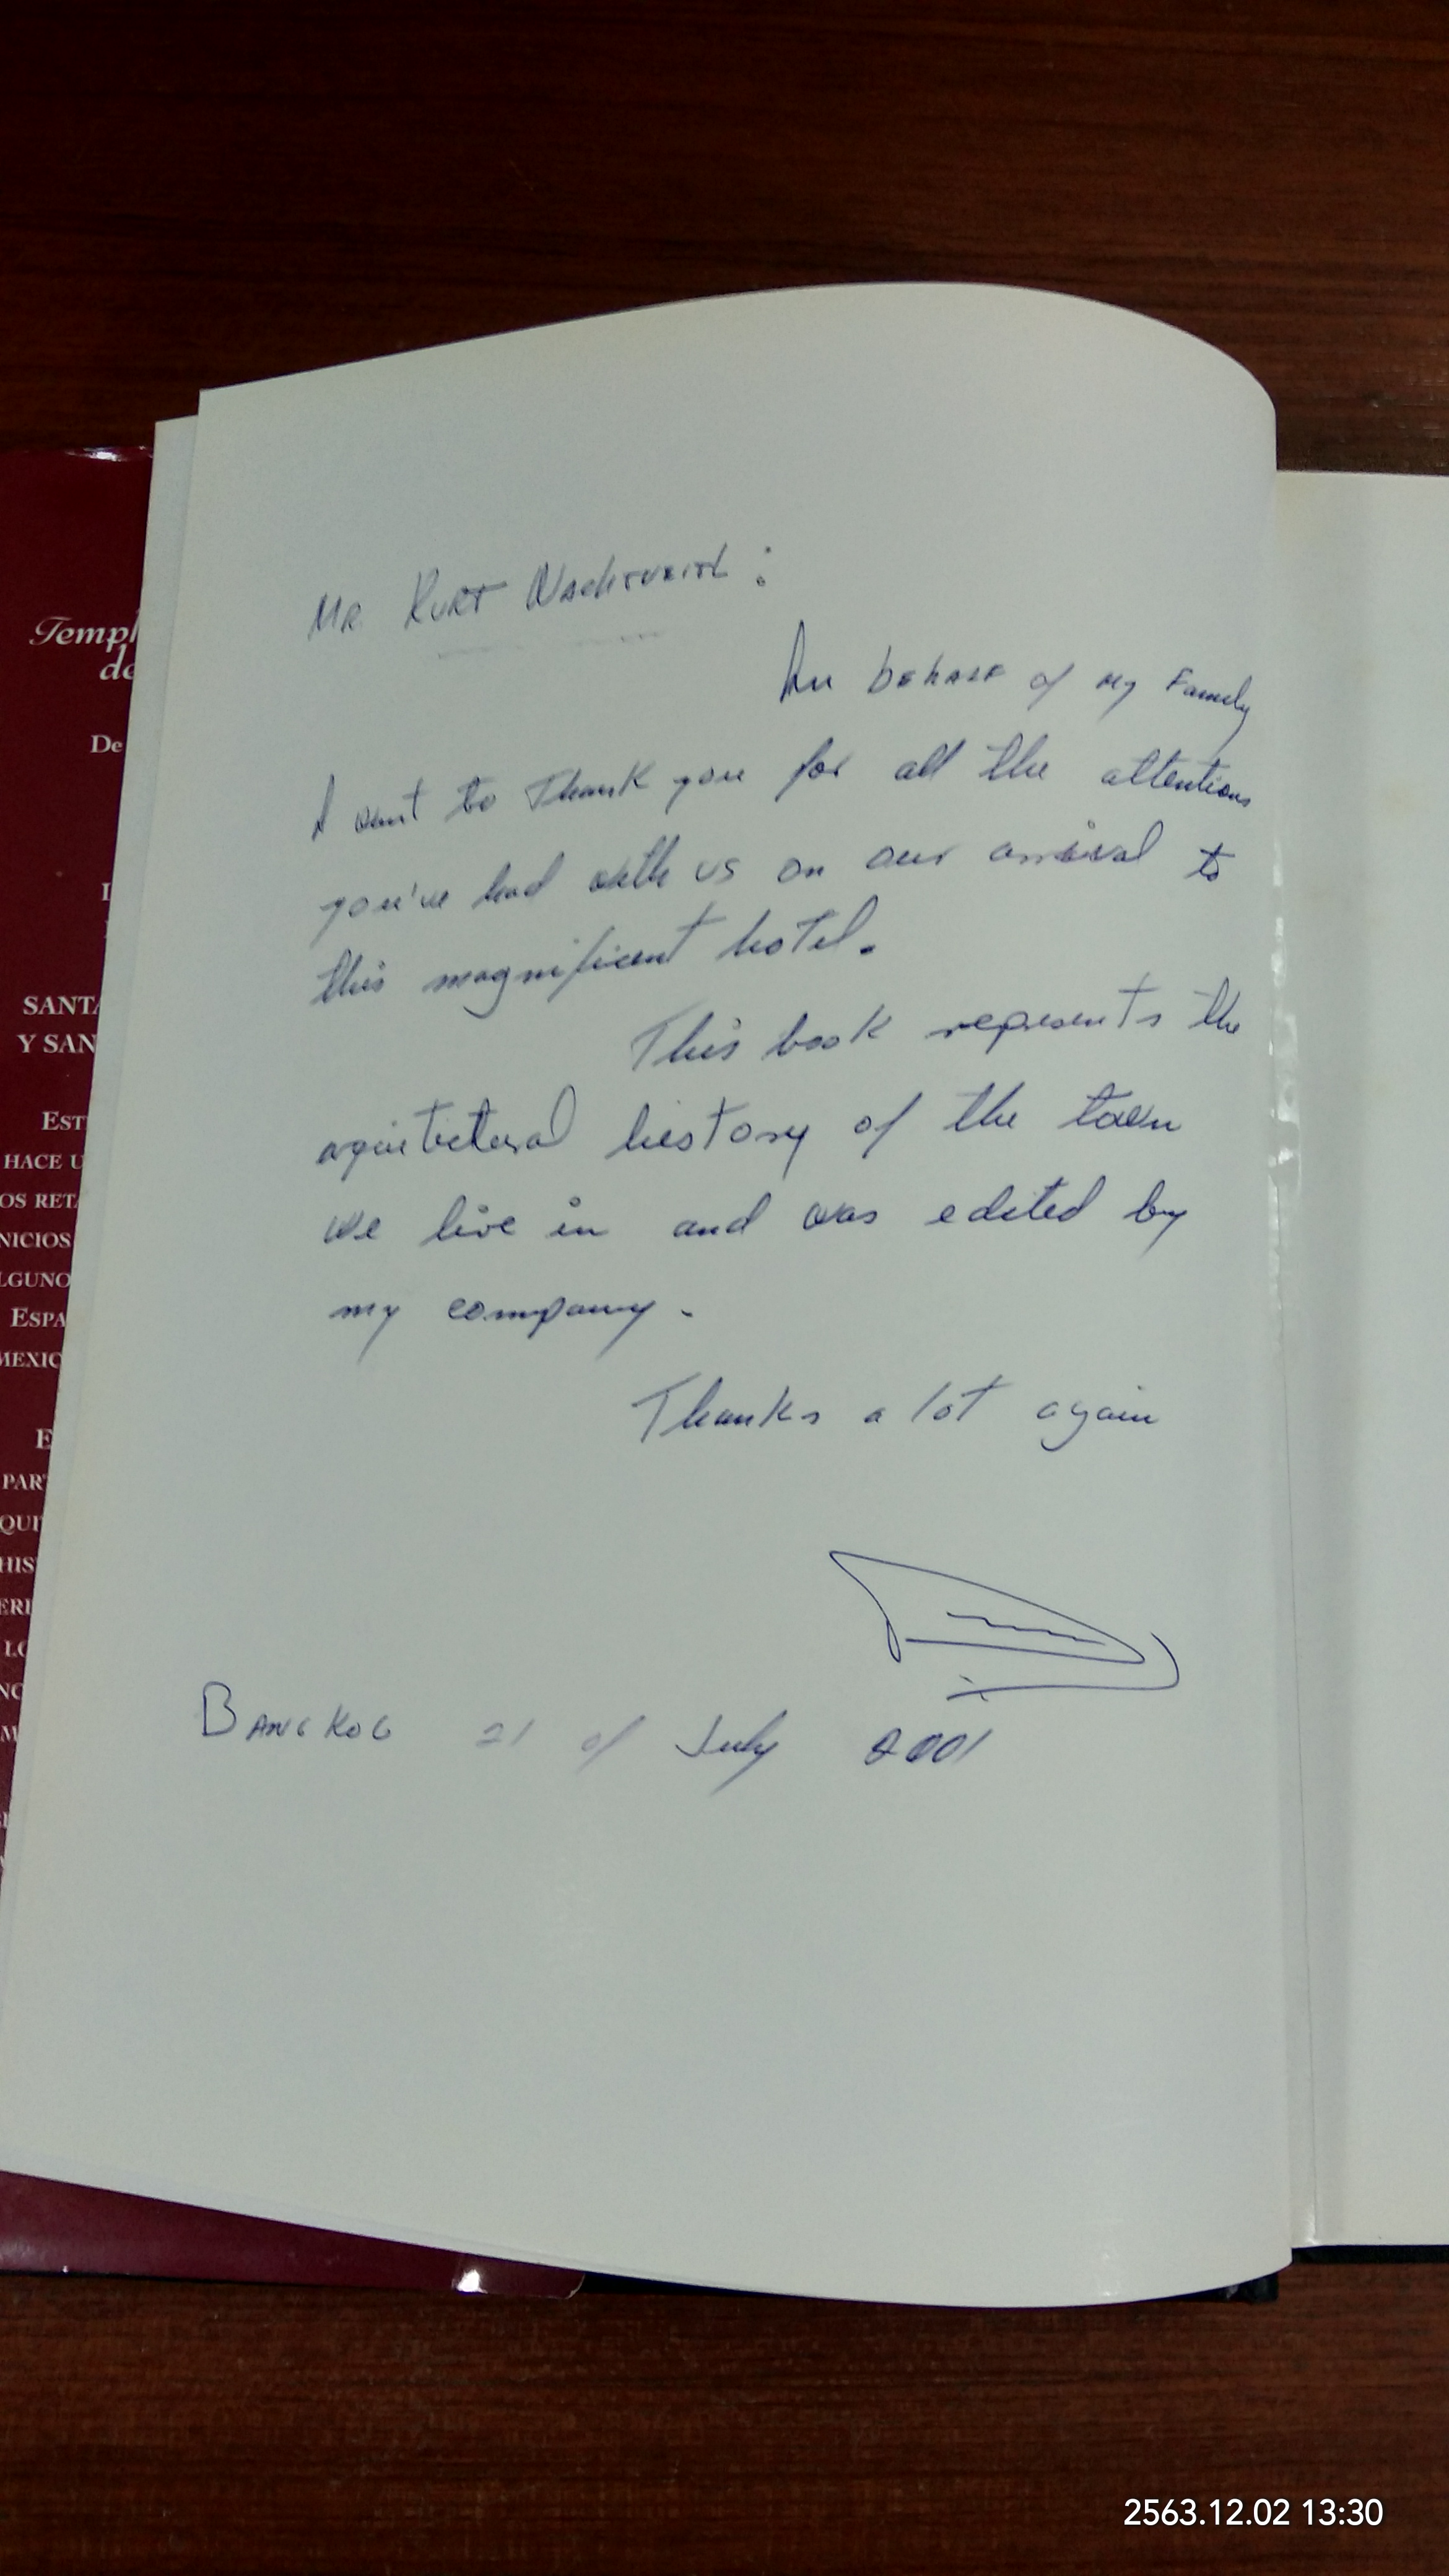 Templ
de
De
SANTA
Y SAN
EST
HACE U
OS RETA
NICIOS
LGUNO
ESPA
MEXIC
E
PAR
QUI
HIS
ERI
LO
NO
M
Mr. Kurt Wachtveitl :
In behalf of my Family
I want to Thank you for all the attentions
you've had with us on our arrival to
this magnificent hotel.
This book represents the
history of the town
we live in and was edited by
my company.
Thanks a lot again
BANGKOG 21 of July 2001
2563.12.02 13:30